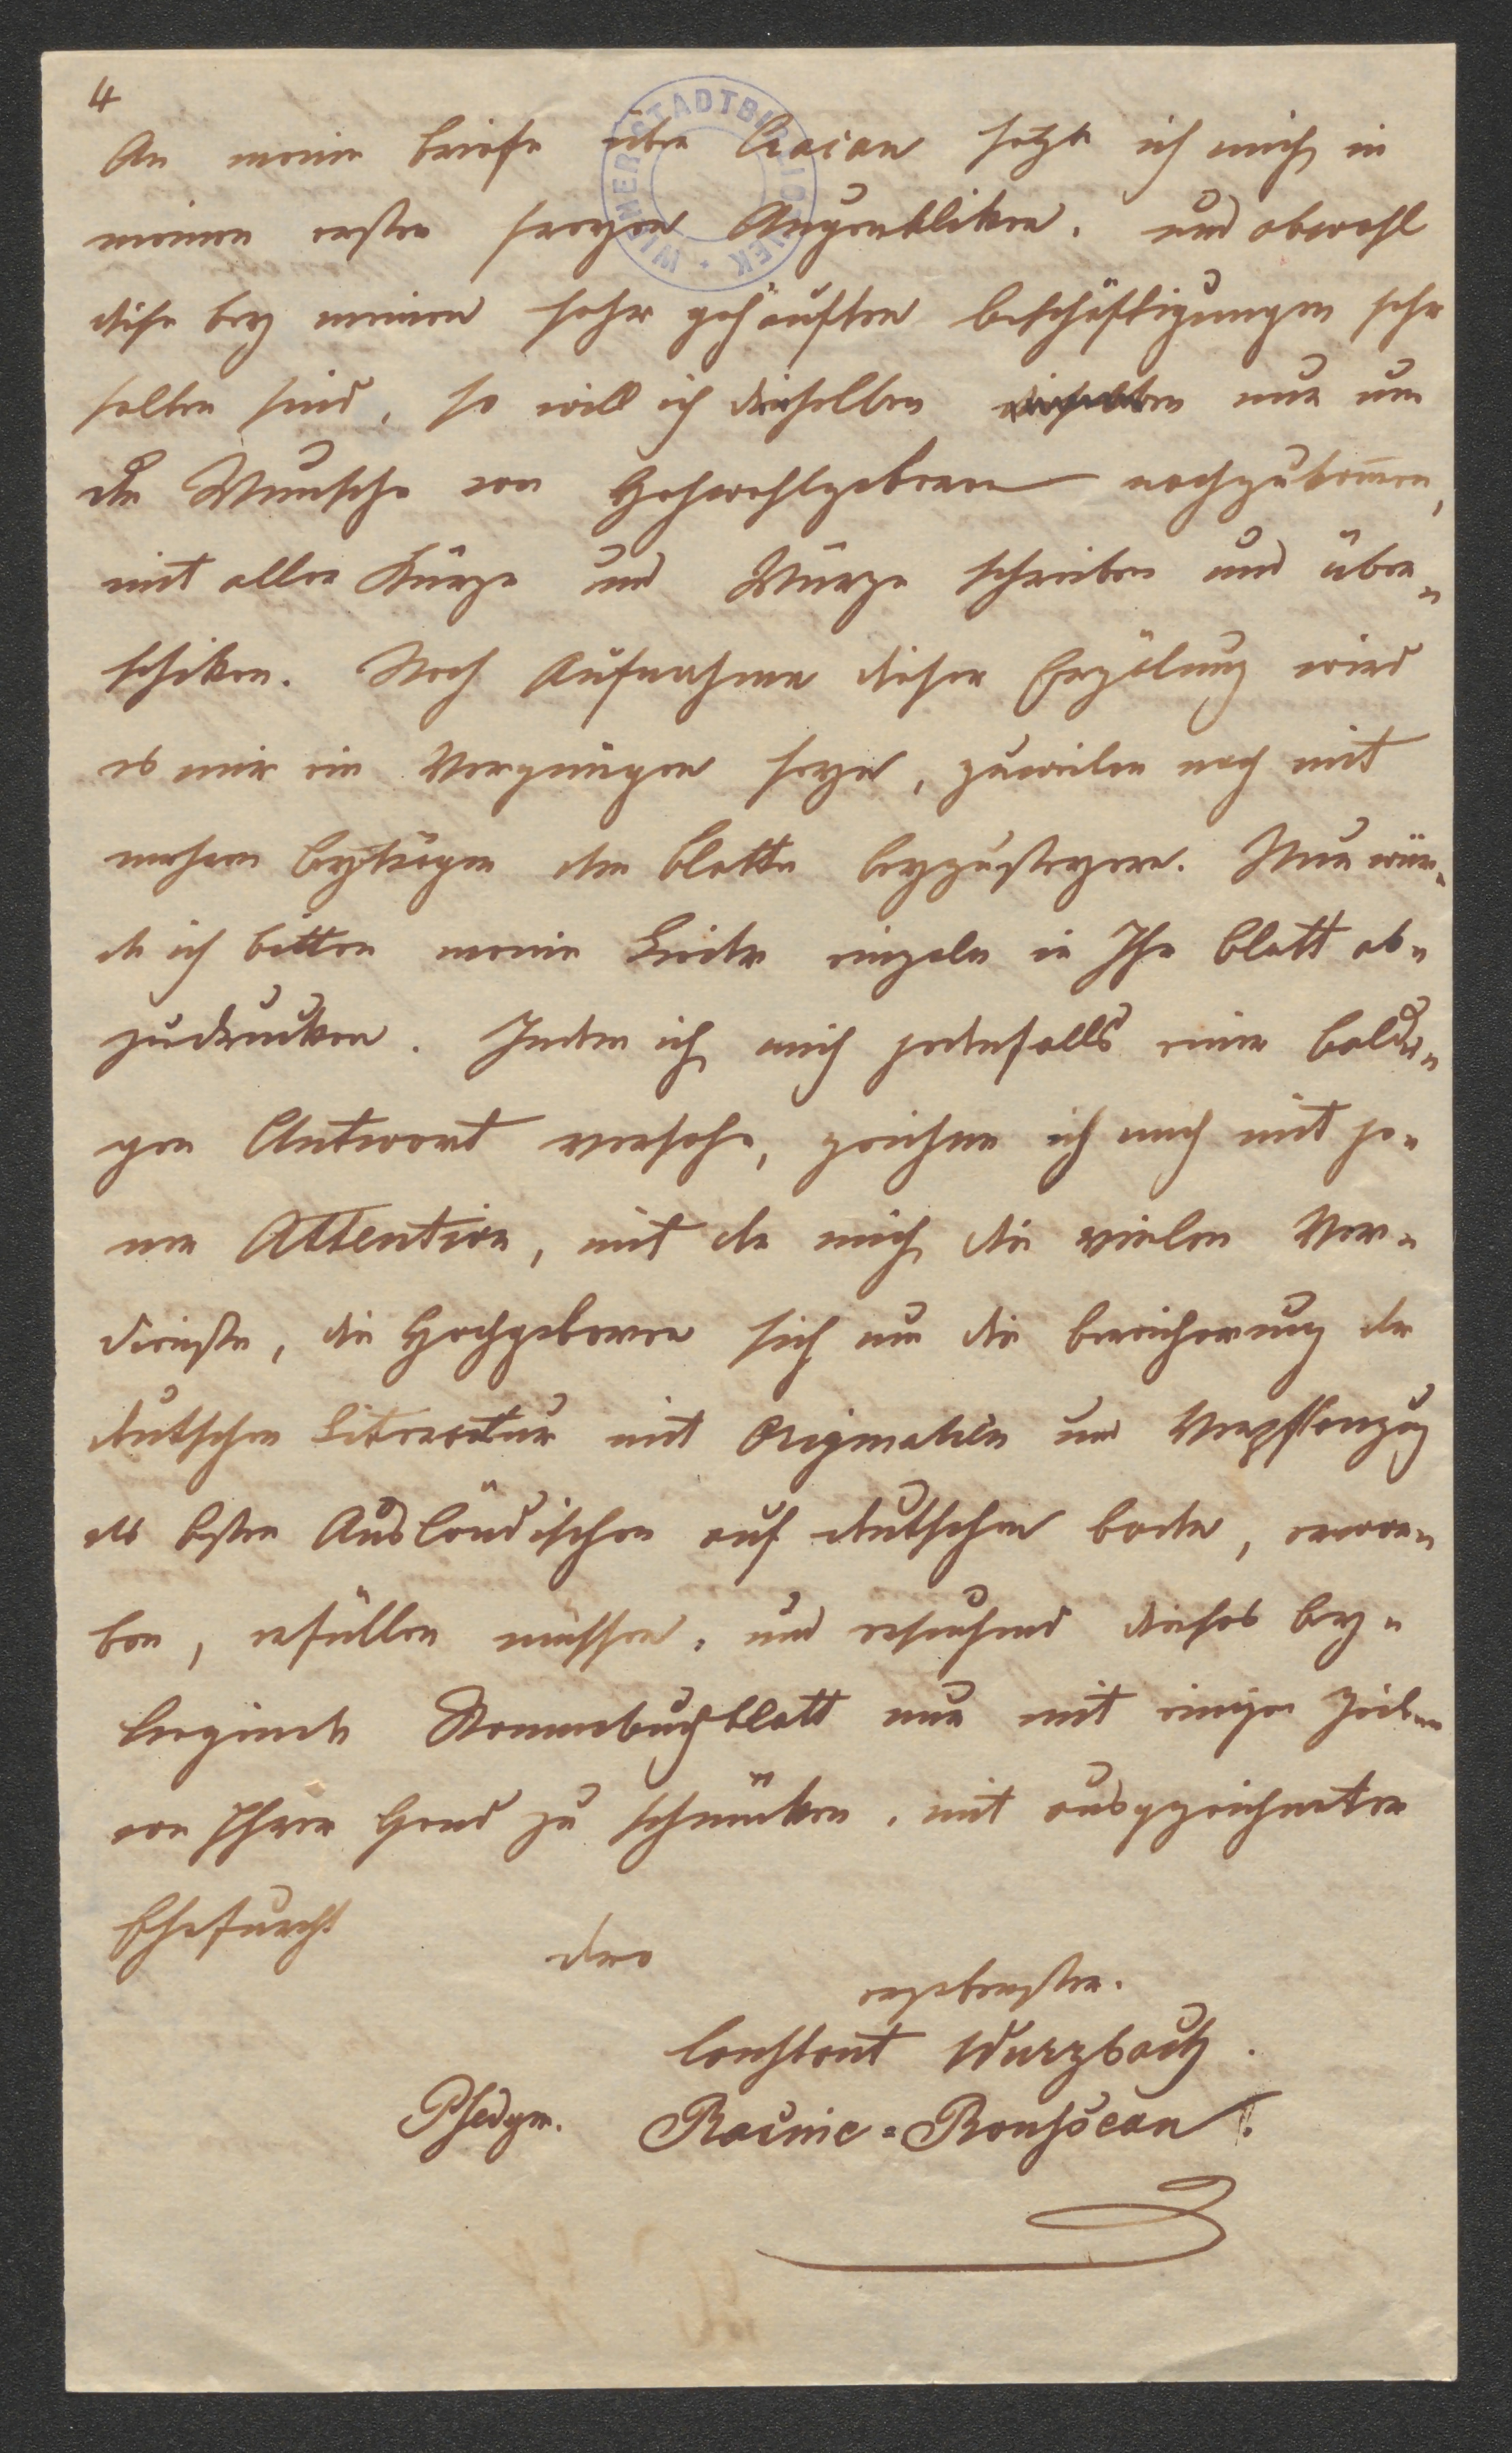 4
An meine Briefe über Cracau setzte ich mich in
meinen ersten freyen Augenbliken. und obwohl
diese bey meinen sehr gehäuften Beschäftigungen sehr
selten sind, so will ich dieselben dieselben nur um
dem Wunsche von Hochwohlgeboren nachzukom̄en,
mit aller Kürze und Würze schreiben und über-
schiken. Nach Aufnahme dieser Erzälung wird
es mir ein Vergnügen seyn, zuweilen noch mit
mehren Beyträgen dem Blatte beyzusteuern. Nun wür-
de ich bitten meine Lieder einzeln in Ihr Blatt ab-
zudrucken. Indem ich mich jedenfalls einer baldi-
gen Antwort versehe, zeichne ich mich mit je-
ner Attention, mit der mich die vielen Ver-
dienste, die Hochgeboren sich um die Bereicherung der
deutschen Literatur mit Originalien und Verpflanzug
des besten Ausländischen auf deutschen Boden, erwor-
ben, erfüllen müssen. und ersuchend dieses bey-
liegende Stammbuchblatt nur mit einigen Zeilen
von Ihrer Hand zu schmüken. mit ausgezeichneter
Ehrfurcht
dero
ergebenster.
Constant Wurzbach.
Psedym. Racine-Rousseau.
WIENER STADTBIBLIOTHEK